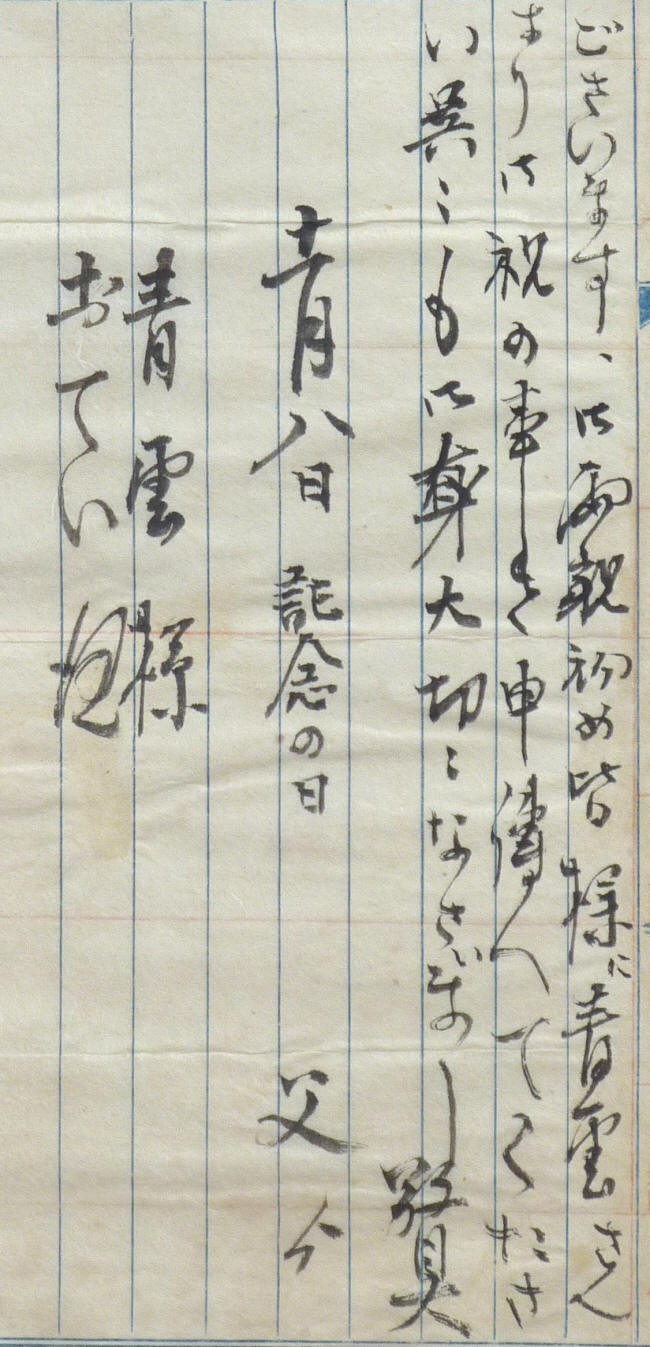 ございます、御両親初め皆様に青雲さん
より御祝の事よく申傳へてくださ
い呉ミも御身大切ニなさいまし 敬具
十一月八日 記念の日 父より
青雲様
おてい 殿